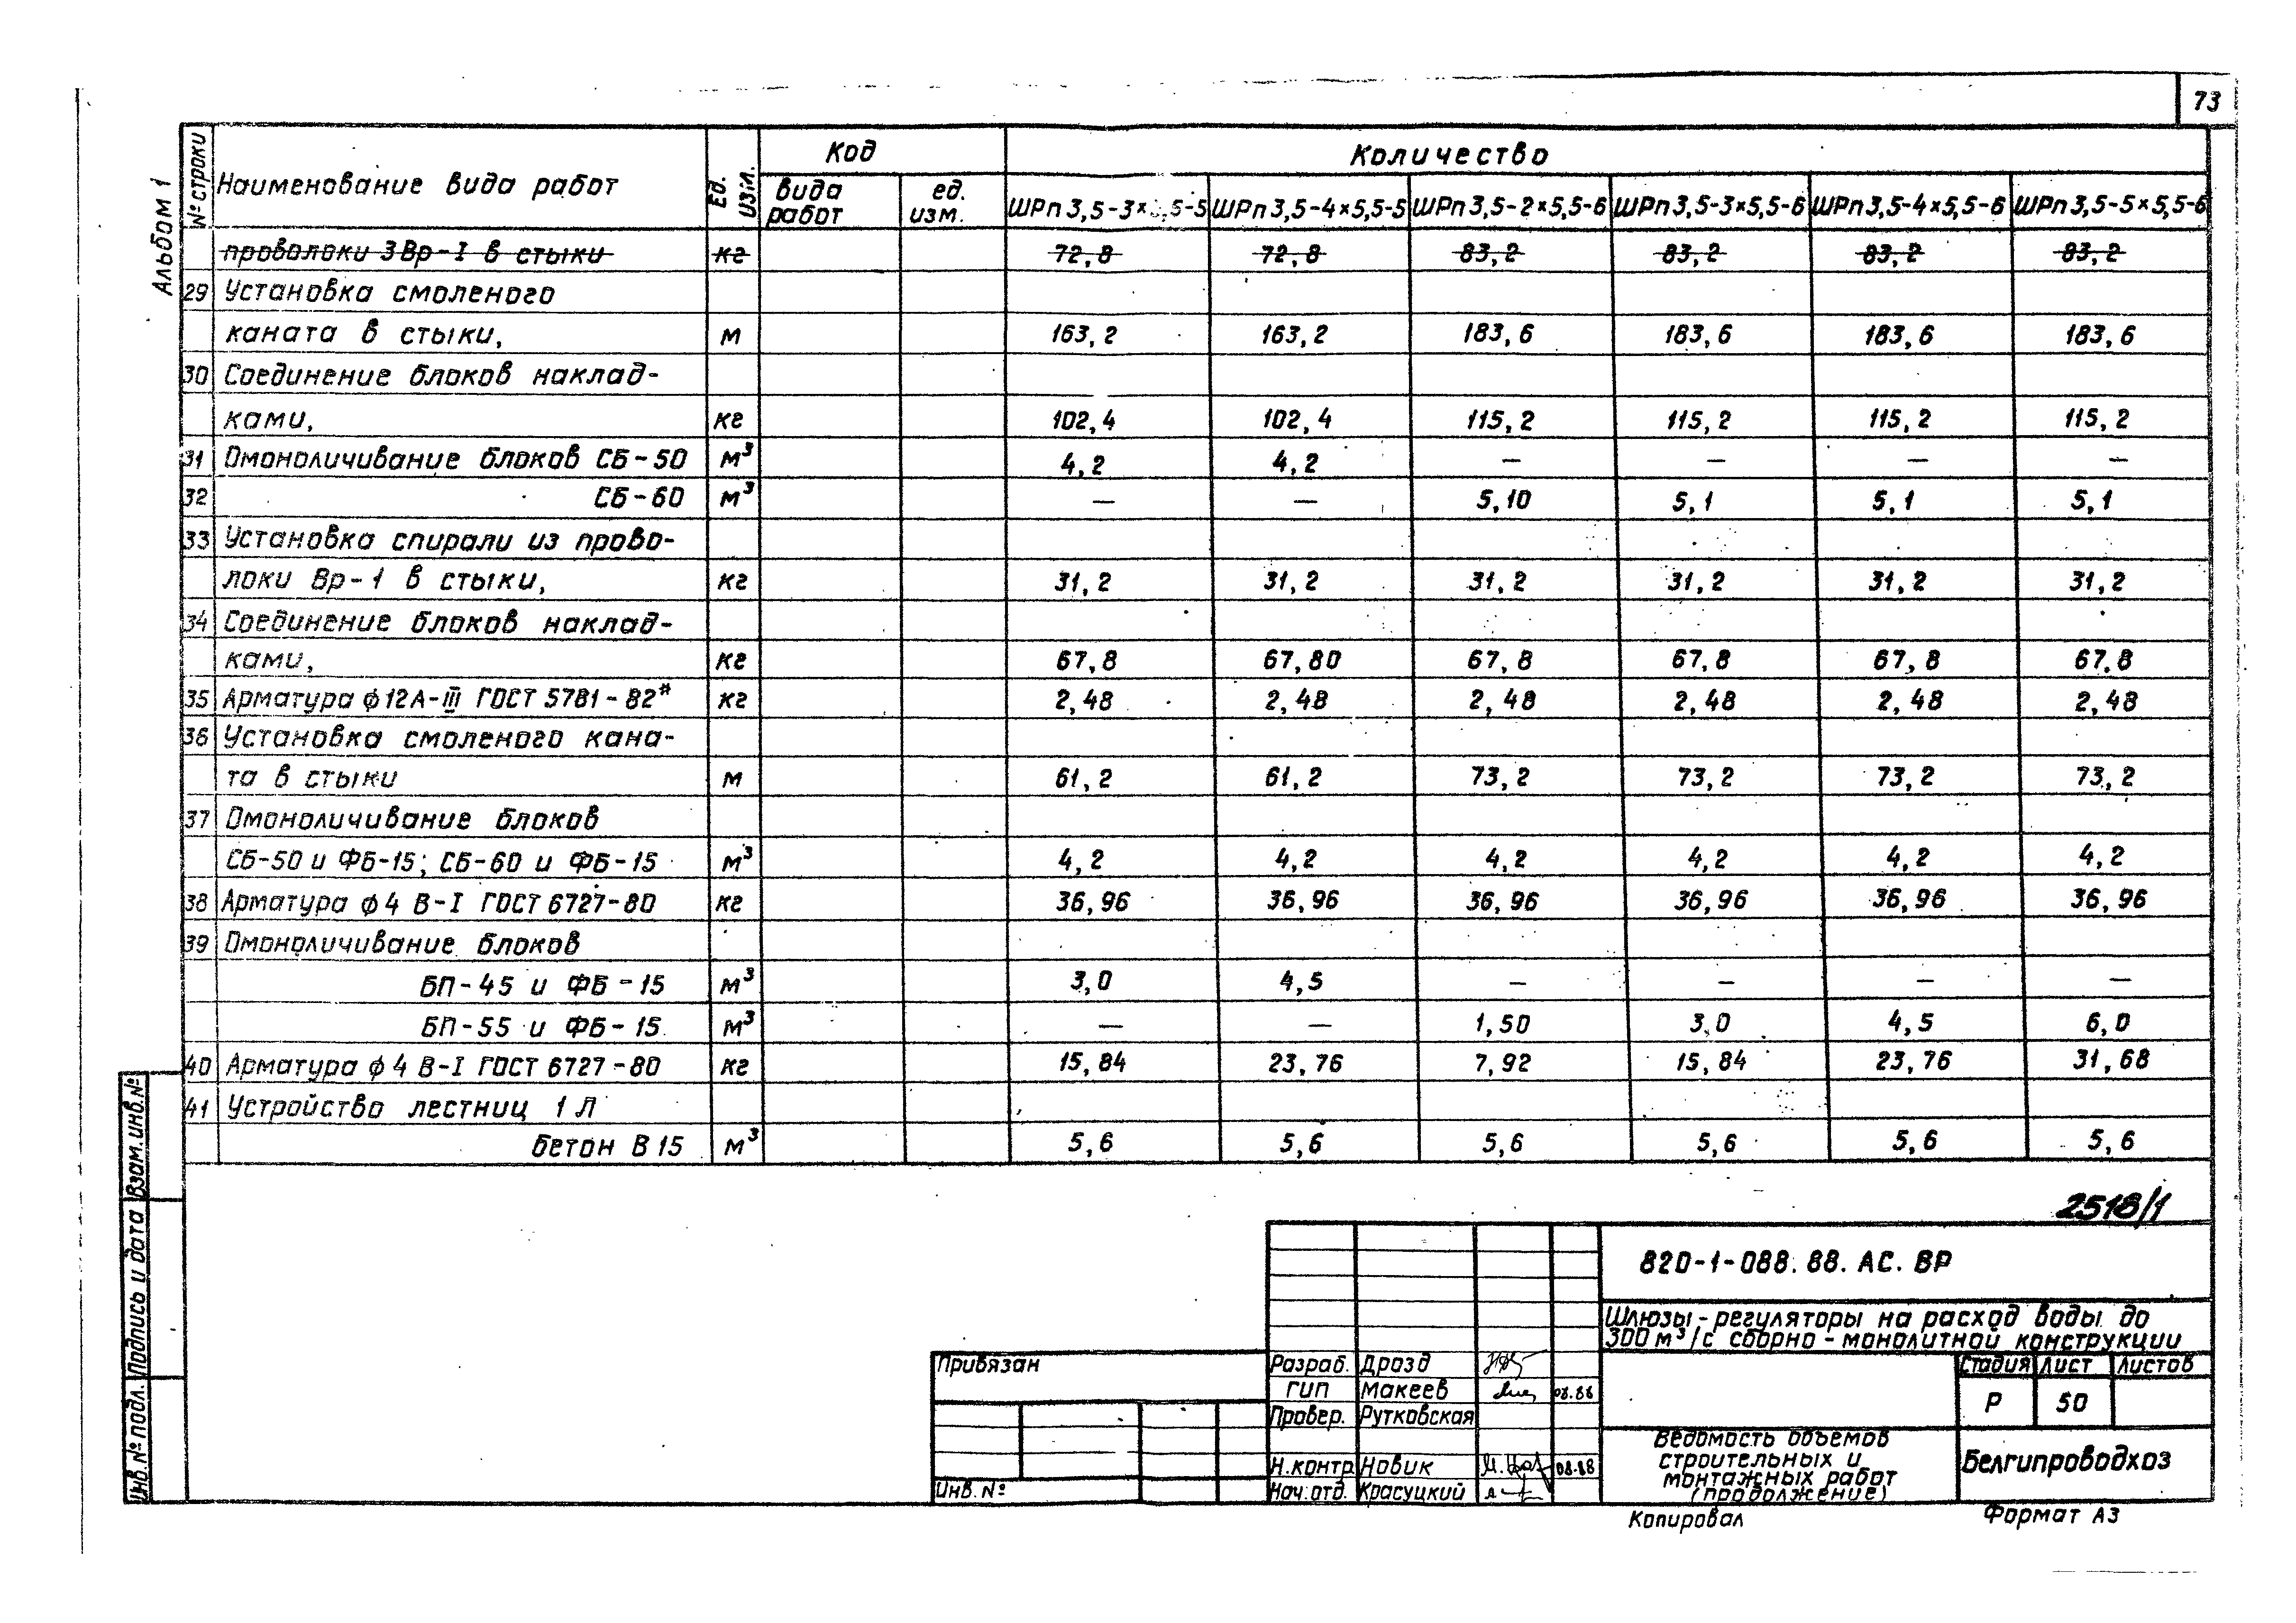 73
Альбом 1
№ строки Наименование вида работ Ед. изм. Код Количество
вида работ ед. изм. ШРп 3,5-3×5,5-5 ШРп 3,5-4×5,5-5 ШРп 3,5-2×5,5-6 ШРп 3,5-3×5,5-6 ШРп 3,5-4×5,5-6 ШРп 3,5-5×5,5-6
проволоки 3Вр-I в стыки кг 72,8 72,8 83,2 83,2 83,2 83,2
29 Установка смоленого
каната в стыки, м 163,2 163,2 183,6 183,6 183,6 183,6
30 Соединение блоков наклад-
ками, кг 102,4 102,4 115,2 115,2 115,2 115,2
31 Омоноличивание блоков СБ-50 м³ 4,2 4,2 — — — —
32 СБ-60 м³ — — 5,10 5,1 5,1 5,1
33 Установка спирали из прово-
локи Вр-1 в стыки, кг 31,2 31,2 31,2 31,2 31,2 31,2
34 Соединение блоков наклад-
ками, кг 67,8 67,80 67,8 67,8 67,8 67,8
35 Арматура ф12А-III ГОСТ 5781-82* кг 2,48 2,48 2,48 2,48 2,48 2,48
36 Установка смоленого кана-
та в стыки м 61,2 61,2 73,2 73,2 73,2 73,2
37 Омоноличивание блоков
СБ-50 и ФБ-15; СБ-60 и ФБ-15 м³ 4,2 4,2 4,2 4,2 4,2 4,2
38 Арматура ф4 В-I ГОСТ 6727-80 кг 36,96 36,96 36,96 36,96 36,96 36,96
39 Омоноличивание блоков
БП-45 и ФБ-15 м³ 3,0 4,5 — — — —
БП-55 и ФБ-15 м³ — — 1,50 3,0 4,5 6,0
40 Арматура ф4 В-I ГОСТ 6727-80 кг 15,84 23,76 7,92 15,84 23,76 31,68
41 Устройство лестниц 1Л
бетон В15 м³ 5,6 5,6 5,6 5,6 5,6 5,6
2518/1
820-1-088.88.АС.ВР
Шлюзы-регуляторы на расход воды до
300 м³/с сборно-монолитной конструкции
Привязан
Инв.№
Разраб. Дрозд
ГИП Макеев 08.88
Провер. Рутковская
Н.контр. Новик 08.88
Нач.отд. Красуцкий
Стадия Лист Листов
Р 50
Ведомость объемов
строительных и
монтажных работ
(продолжение)
Белгипроводхоз
Копировал
Формат А3
Взам.инв.№
Подпись и дата
Инв.№ подл.